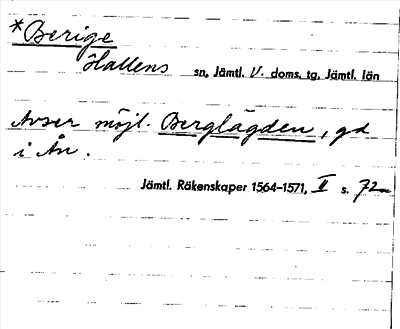 *Berige
Hallens sn, Jämtl. V. doms. tg, Jämtl. län
Avser möjl. Berglägden, gd
i Ån.
Jämtl. Räkenskaper 1564–1571, II s. 72